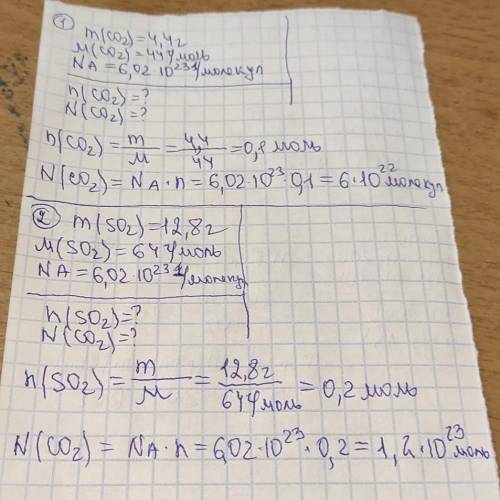 ① m(CO₂)=4,4г
M(CO₂)=44г/моль
NA=6,02·10²³ 1/молекул
n(CO₂)=?
N(CO₂)=?
n(CO₂)= m/M = 4,4/44 =0,1 моль
N(CO₂)= NA·n=6,02·10²³·0,1=6·10²² молекул
② m(SO₂)=12,8г
M(SO₂)=64г/моль
NA=6,02·10²³ 1/молекул
n(SO₂)=?
N(CO₂)=?
n(SO₂)= m/M = 12,8г/64г/моль = 0,2 моль
N(CO₂)= NA·n=6,02·10²³·0,2=1,2·10²³ моль